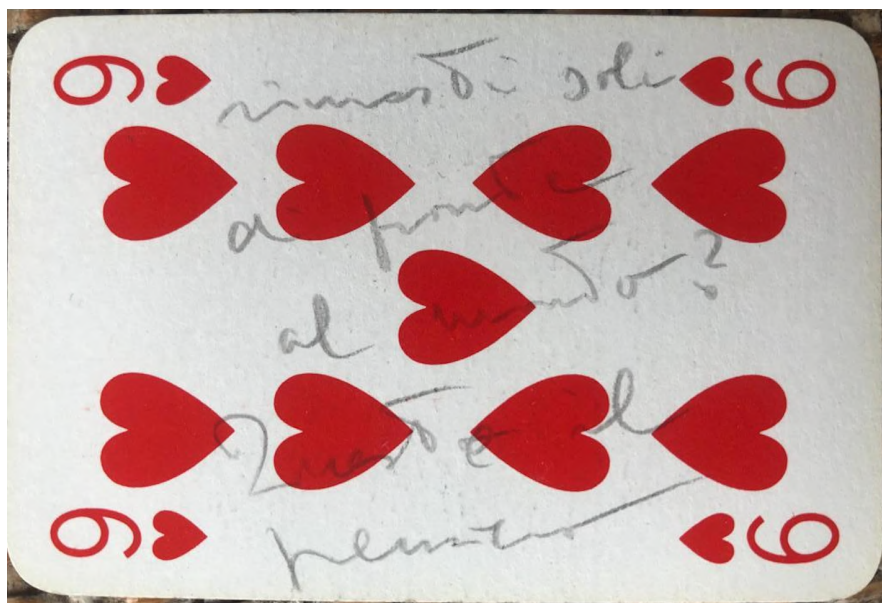 9 9
rimasti soli
di fronte
al mondo?
Questo è il
pensiero
9 9